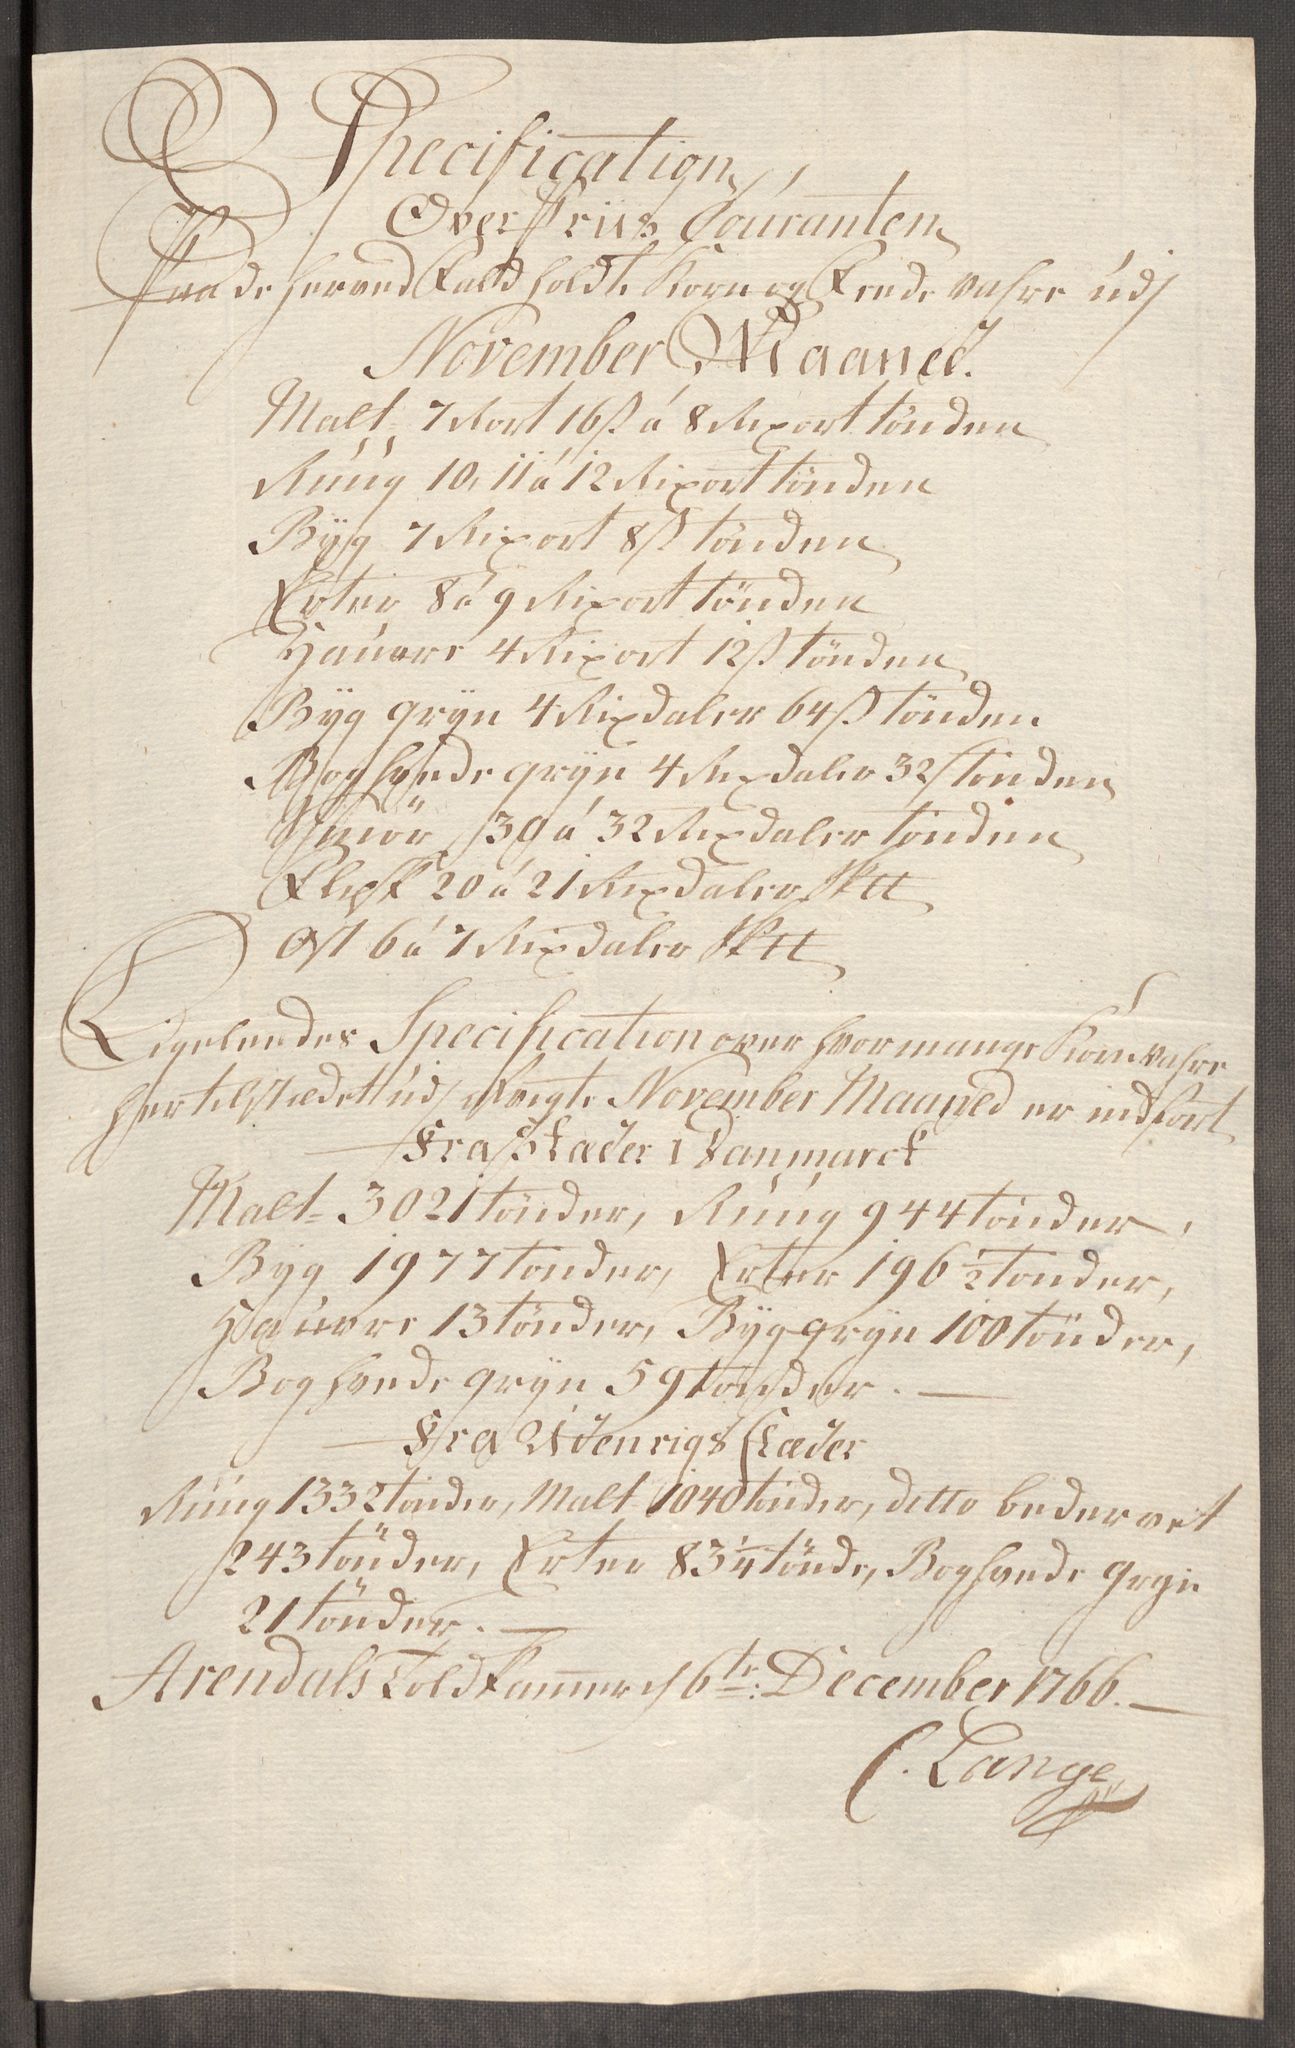 Specification
Over Priis Couranten
Paa de herved Faldholdte Korn og Fede vahre udj
November Maaned.
Malt 7 Rort 16 ß á 8 Rixort tönden
Rúúg 10, 11 á 12 Rixort tönden
Byg 7 Rixort 8 ß tönden
Erter 8 á 9 Rixort tönden
Haúvre 4 Rixort 12 ß tönden
Byg gryn 4 Rixdaler 64 ß tönden
Boghvede gryn 4 Rixdaler 32 ß tönden
Smör 30 á 32 Rixdaler tönden
Flesk 20 á 21 Rixdaler Sk tt
Ost 6 á 7 Rixdaler Sk tt
Ligeleedes Specification over hvormange Korn vahre
hertilstædet udj November Maaned er indfört
Fra Stæder i Danmarck
Malt 3021 tönder, Rúúg 944 tönder,
Byg 1977 tönder, Erter 196 1/2 tönder,
Haúvre 13 tönder, Byggryn 100 tönder,
Boghvede gryn 59 tönder.
Fra Udenrigs Stæder
Rúúg 1332 tönder, Malt 1040 tönder, ditto bedervet
243 tönder, Erter 83 1/4 tönde, Boghvede gryn
21 tönder.
Arendals Told Kammer d 6te: December 1766.
C. Lange